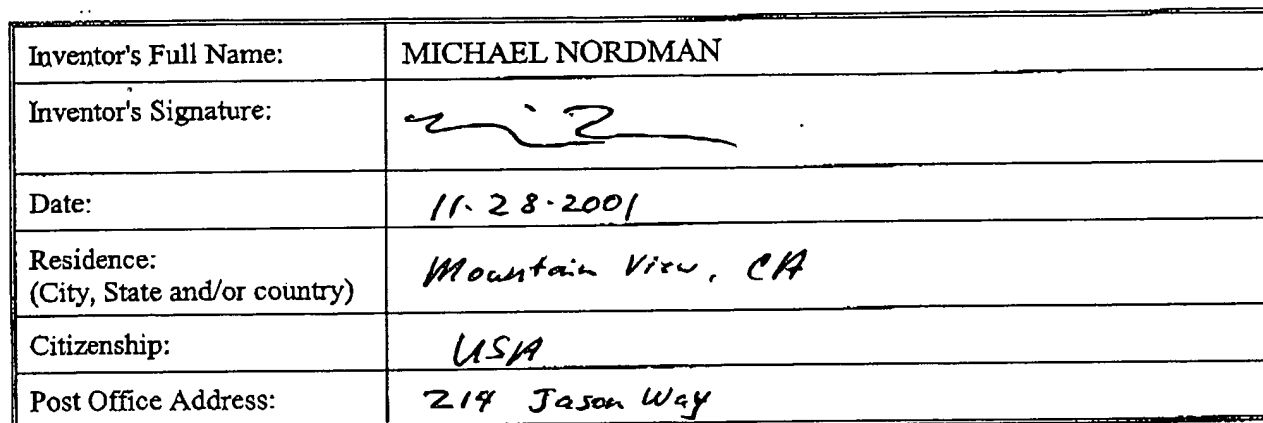 Inventor's Full Name: MICHAEL NORDMAN
Inventor's Signature:
Date: 11-28-2001
Residence:
(City, State and/or country) Mountain View, CA
Citizenship: USA
Post Office Address: 214 Jason Way